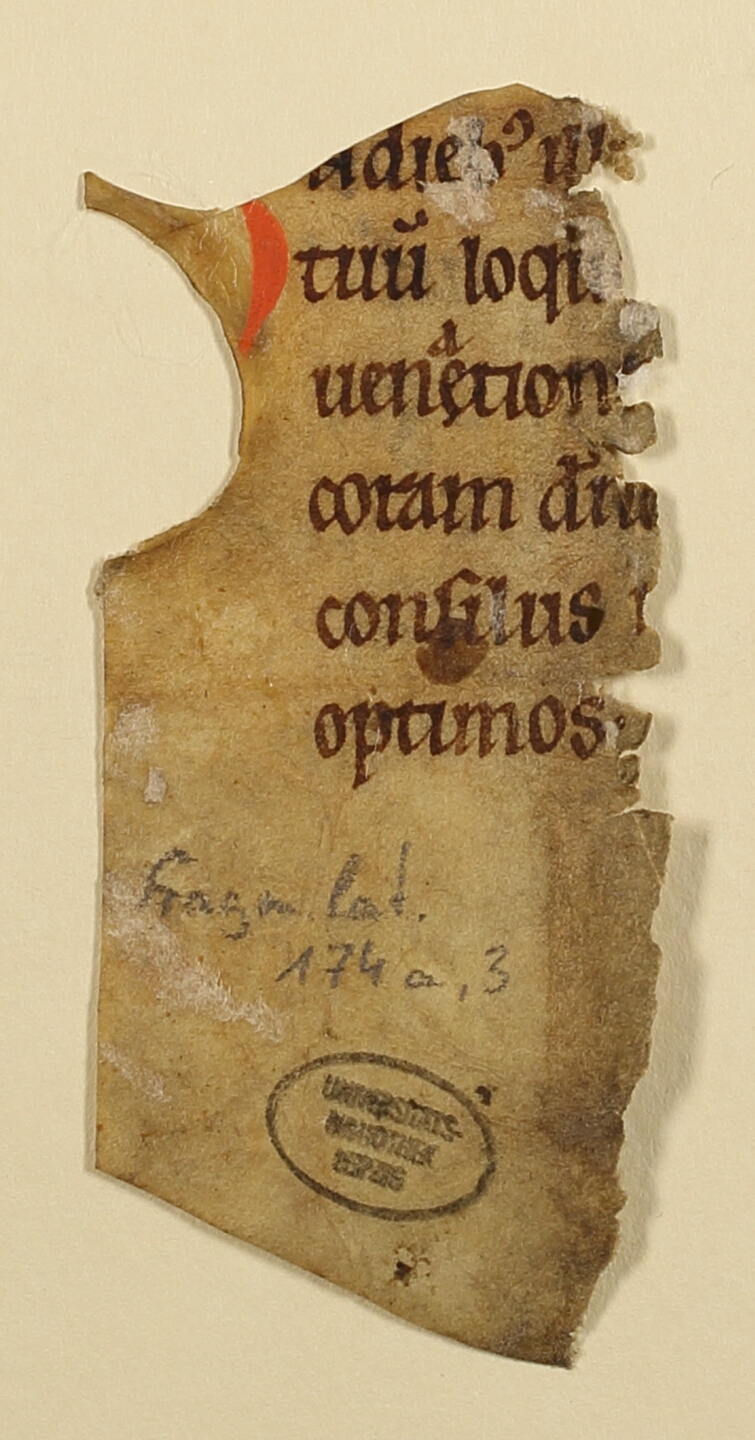 adieb᾽ ill
tuū loqu
uenetion
coram dn̄u
consilus
optimos·
Fragm. lat.
174 a, 3
UNIVERSITÄTS-
BIBLIOTHEK
LEIPZIG